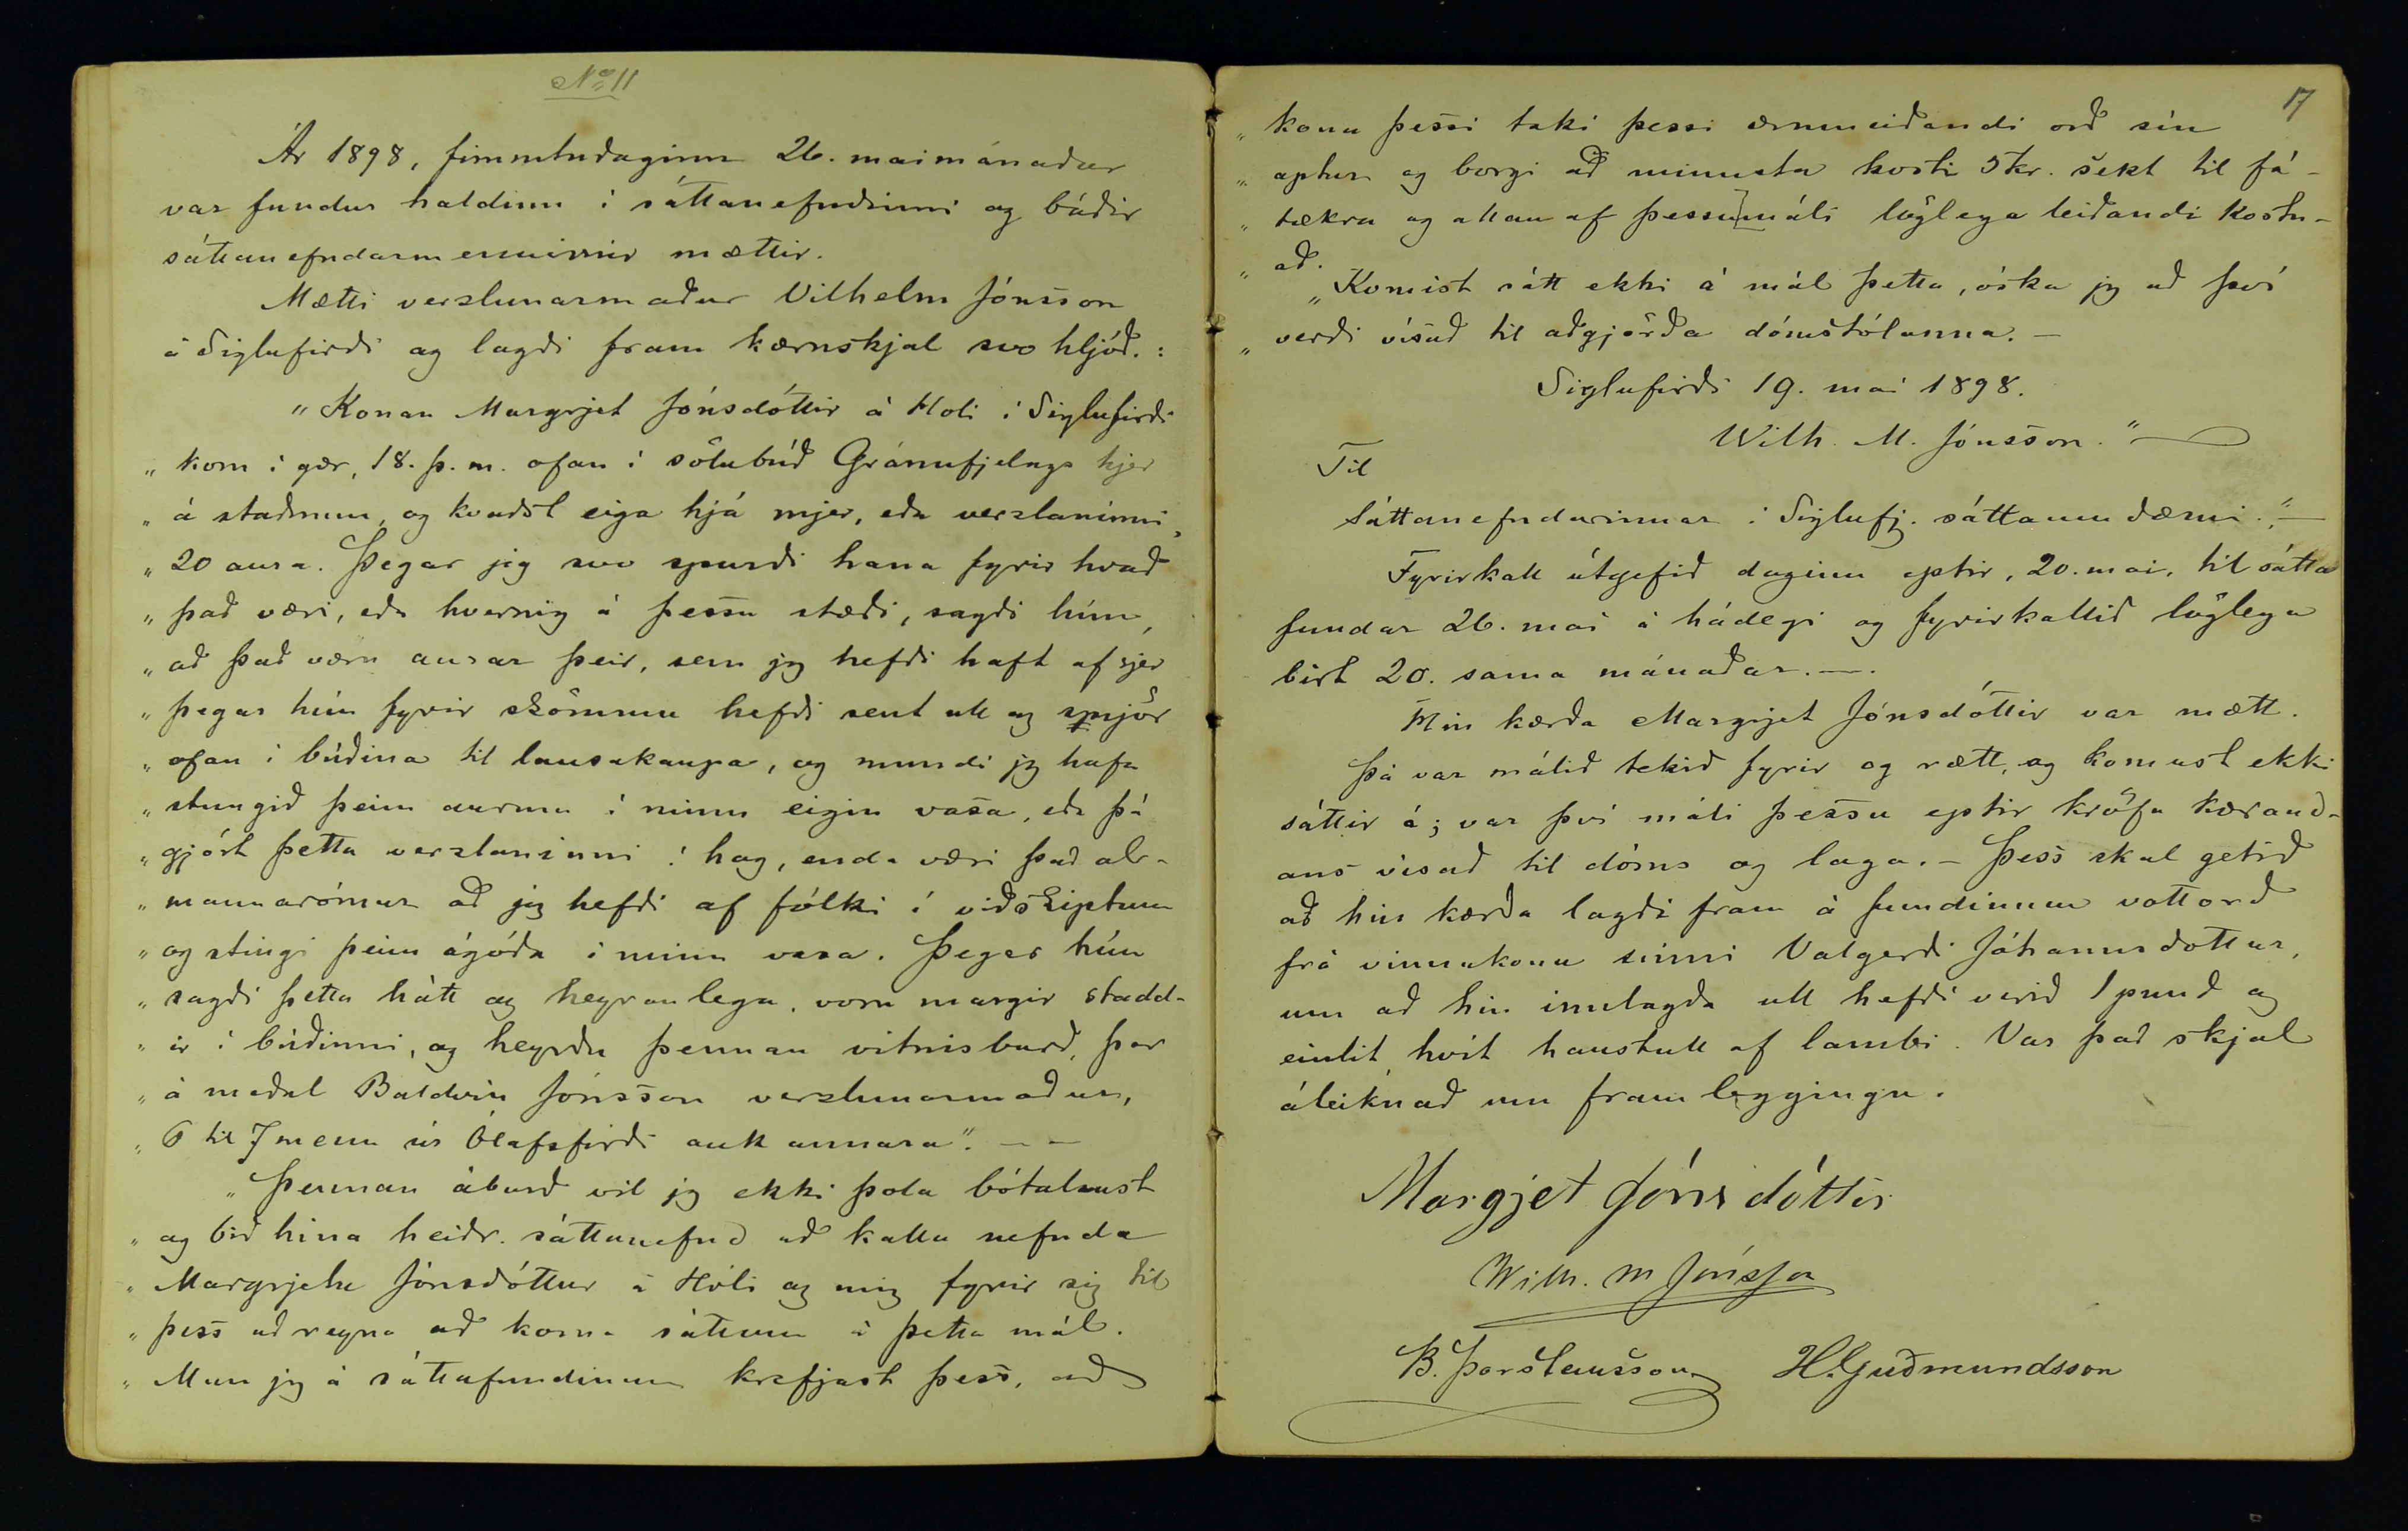 No 11
Ár 1898, fimmtudaginn 26. maimánaðar
var fundur haldinn í sáttanefndinni og báðir
sáttanefndarmennirnir mættir.
Mætti verzlunarmaður Vilhelm Jónsson
á Siglufirði og lagði fram kæruskjal svo hljóð.:
„Konan Margrjet Jónsdóttir á Hóli í Siglufirði
„ kom í gær, 18. þ. m. ofan í sölubúð Gránufjelags hjer
„ á staðnum, og kvaðst eiga hjá mjer, eða verzlaninni,
„ 20 aura. Þegar jeg svo spurði hana fyrir hvað
„ það væri, eða hvernig á þessu stæði, sagði hún,
„ að það væru aurar þeir, sem jeg hefði haft af sjer
„ þegar hún fyrir skömmu hefði sent ull og smjör
„ ofan í búðina til lausakaupa, og mundi jeg hafa
„ stungið þeim aurum í minn eigin vasa, eða þá
„ gjört þetta verzlaninni í hag, enda væri það al-
„ mannarómur að jeg hefði af fólki í viðskiptum
„ og stingi þeim ágóða í minn vasa. Þegar hún
„ sagði þetta hátt og heyranlega, voru margir stadd-
„ ir í búðinni, og heyrðu þennan vitnisburð, þar
„ á meðal Baldvin Jónsson verzlunarmaður,
„ 6 til 7 menn úr Ólafsfirði auk annara“. — —
„Þennan áburð vil jeg ekki þola bótalaust
„ og bið hina heiðr. sáttanefnd að kalla nefnda
„ Margrjetu Jónsdóttur á Hóli og mig fyrir sig til
„ þess að reyna að koma sáttum á þetta mál.
„ Mun jeg á sáttafundinum krefjast þess, að
17
„ kona þessi taki þessi ærumeiðandi orð sín
„ aptur og borgi að minnsta kosti 5 kr. sekt til fá-
„ tækra og allan af þessu máli löglega leiðandi kostn-
„ að.
„Komist sátt ekki á mál þetta, óska jeg að því
„ verði vísað til aðgjörða dómstólanna. —
Siglufirði 19. mai 1898.
Wilh. M. Jónsson.“
Til
Sáttanefndarinnar í Siglufj. sáttaumdæmi.“ —
Fyrirkall útgefið daginn eptir, 20. mai, til sátta
fundar 26. mai á hádegi og fyrirkallið löglega
birt 20. sama mánaðar. —.
Hin kærða Margrjet Jónsdóttir var mætt.
Þá var málið tekið fyrir og rætt, og komust ekki
sáttir á; var því máli þessu eptir kröfu kærand-
ans vísað til dóms og laga. — Þess skal getið
að hin kærða lagði fram á fundinum vottorð
frá vinnukonu sinni Valgerði Jóhannsdottur,
um að hin innlagða ull hefði verið 1 pund og
einlit, hvít haustull af lambi. Var það skjal
áteiknað um framleggingu.
Margjet Jónsdóttir
Wilh. M Jónsson
B. Þorsteinsson H. Guðmundsson